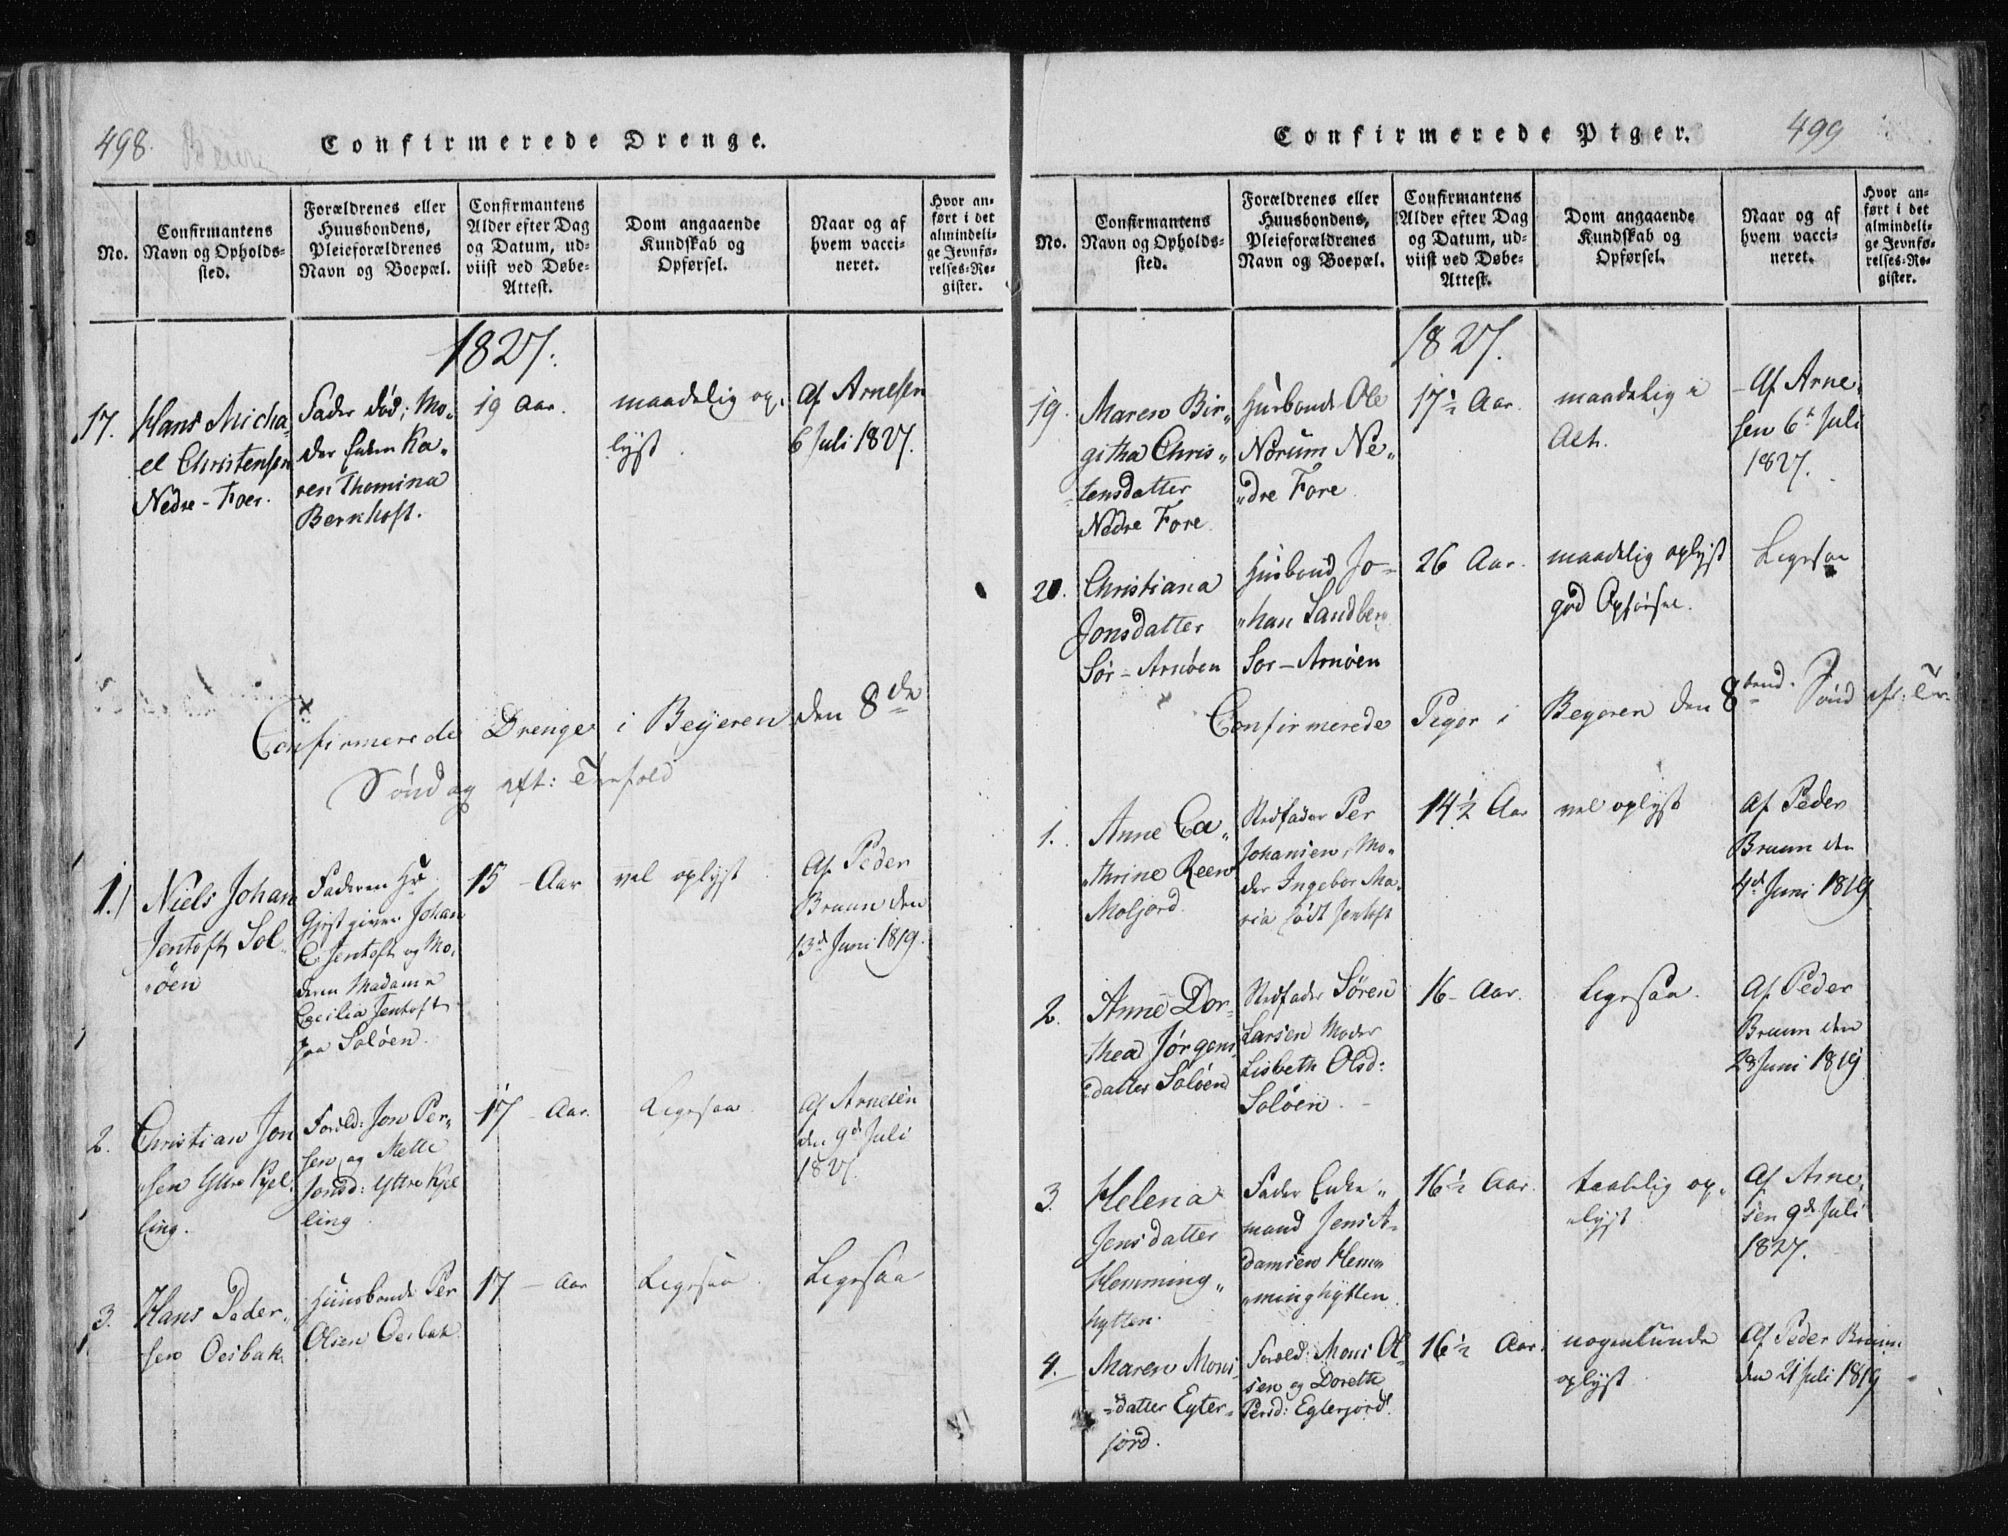 498.
Confirmerede Drenge.
No.
Confirmantens
Navn og Opholds-
sted.
Forældrenes eller
Huusbondens,
Pleieforældrenes
Navn og Boepæl.
Confirmantens
Alder efter Dag
og Datum, ud-
viist ved Døbe-
Attest.
Dom angaaende
Kundskab og
Opførsel.
Naar og af
hvem vacci-
neret.
Hvor an-
ført i det
almindeli-
ge Jevnfø-
relses-Re-
gister.
1827.
17.
Hans Micha-
el Christensen
Nedre-Foer.
Fader død; Mo-
der Enken Ka-
ren Thomina
Bernhoft.
19 Aar.
maadelig op-
lyst.
Af Arnesen
6 Juli 1827.
Confirmerede Drenge i Beyeren den 8de
Søndag eft: Trefold
1.
Niels Johan
Jentoft Sol-
öen
Faderen Hr
Gjestgiver Johan
C. Jentoft og Mo-
deren Madame
Cecilia Jentoft
paa Soløen.
15 - Aar
vel oplyst
Af Peder
Bruun den
13d Juni 1819.
2.
Christian Jon
sen Yttre Kjel-
ling.
Foræld: Jon Per-
sen og Mette
Jonsd: Yttre Kjel
ling.
17 - Aar.
Ligesaa
Af Arnesen
den 9d Juli
1827.
3.
Hans Peder-
sen Oesbak
Huusbonde Per
Olsen Oesbak
17 - Aar
Ligesaa.
Ligesaa
Confirmerede Piger.
499
No.
Confirmantens
Navn og Opholds-
sted.
Forældrenes eller
Huusbondens,
Pleieforældrenes
Navn og Boepæl.
Confirmantens
Alder efter Dag
og Datum, ud-
viist ved Døbe-
Attest.
Dom angaaende
Kundskab og
Opførsel.
Naar og af
hvem vacci-
neret.
Hvor an-
ført i det
almindeli-
ge Jevnfø-
relses-Re-
gister.
1827.
19.
Maren Bir-
githa Chris-
tensdatter
Nedre Fore
Husbonde Ole
Norum Ne-
dre Fore
17½ Aar.
maadelig i
Alt.
Af Arne-
sen 6t Juli
1827.
20.
Christiana
Jonsdatter
Sör-Arnöen
Husbond Jo-
han Sandberg
Sör-Arnöen
26 Aar.
maadelig oplyst
god Opførsel.
Ligesaa
Confirmerede Piger i Beyeren den 8tend. Sönd eft: Tr.
1.
Anne Ca-
thrine Reen
Moljord.
Stedfader Per
Johansen, Mo-
der Ingebor Ma-
ria født Jentoft
14½ Aar
vel oplyst
Af Peder
Bruun den
4d Juni 1819
2.
Anne Dor-
thea Jørgens-
datter Soløen
Stedfader Søren
Larsen Moder
Lisbeth Olsd:
Soløen.
16 - Aar.
Ligesaa.
Af Peder
Bruun den
28 Juni 1819
3.
Helena
Jensdatter
Hemming-
hytten.
Fader Enke-
mand Jens A-
damsen Hem-
minghytten
16½ Aar.
taalelig op-
lyst
Af Arne-
sen 9de Juli
1827.
4.
Maren Mons-
datter Egter-
jord.
Foræld: Mons Ol-
sen og Dorethe
Persd: Egterjord.
16½ Aar.
nogenlunde
oplyst
Af Peder Bruun
den 21 Juli 1819